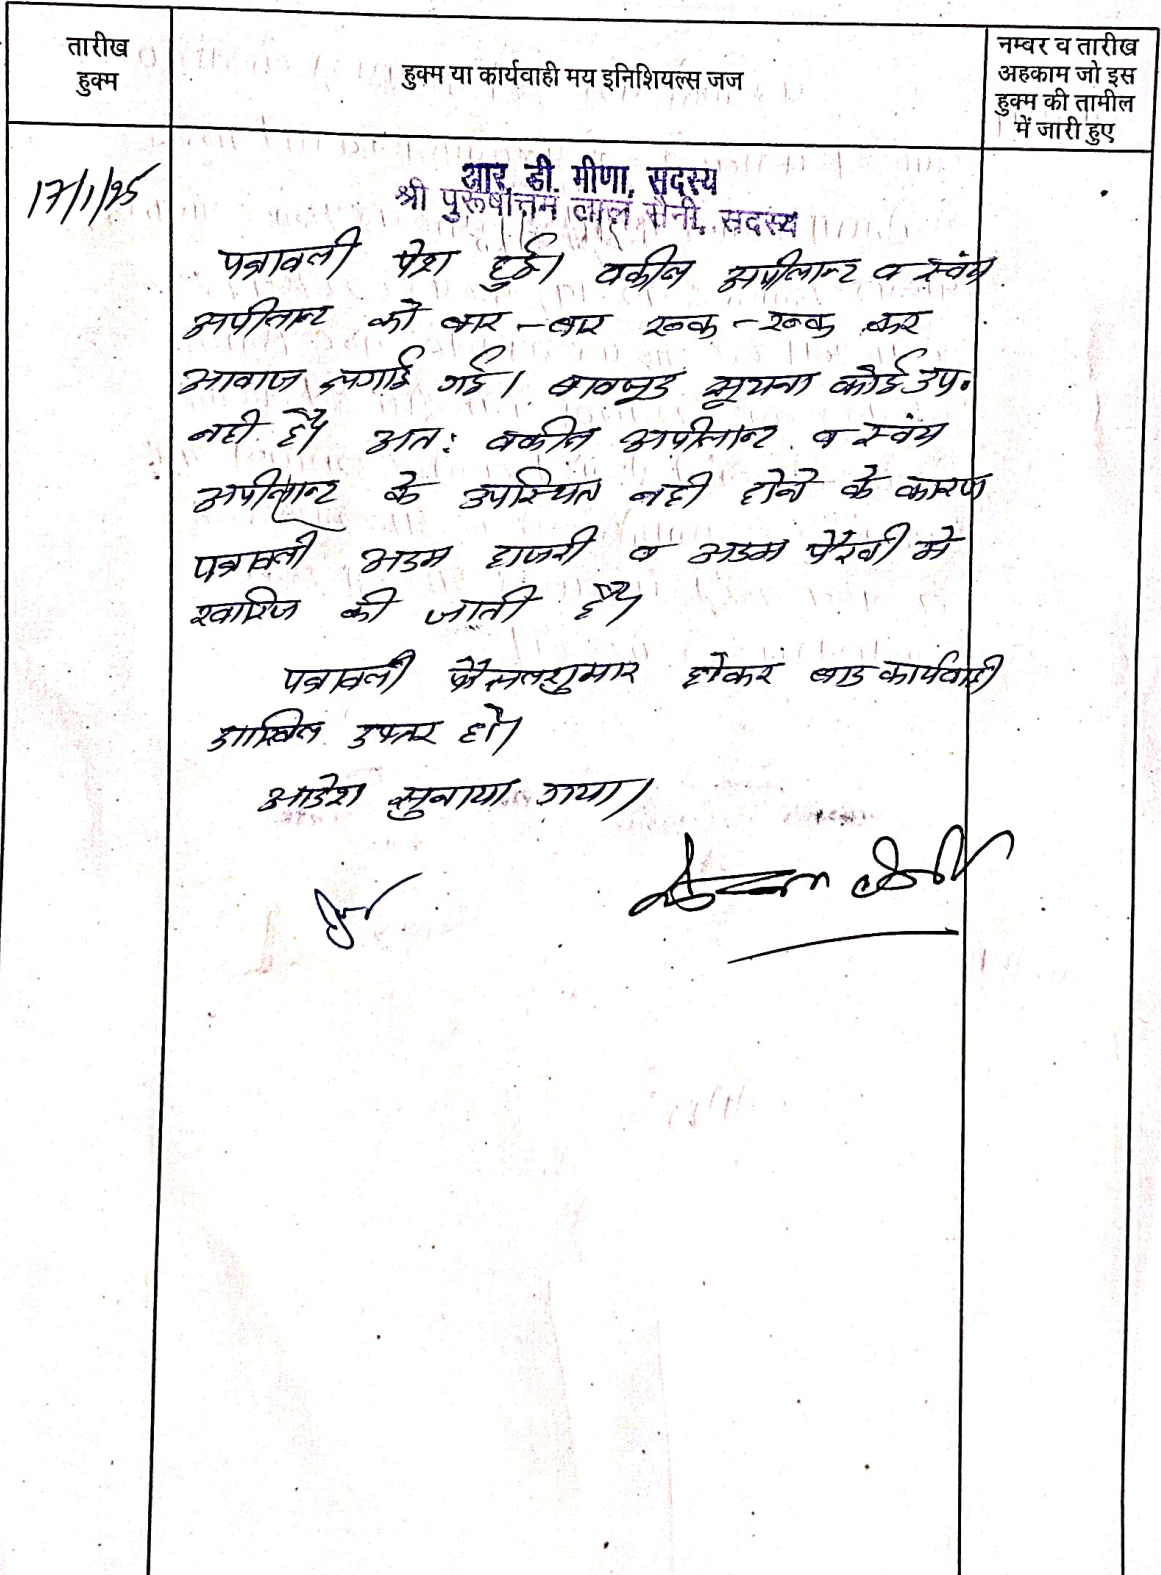 तारीख
हुक्म
हुक्म या कार्यवाही मय इनिशियल्स जज
नम्बर व तारीख
अहकाम जो इस
हुक्म की तामील
में जारी हुए
17/1/25
आर. डी. मीणा, सदस्य
श्री पुरूषोत्तम लाल सैनी, सदस्य
पत्रावली पेश हुई। वकील अपीलान्ट व स्वंय
अपीलान्ट को बार-बार रूक-रूक कर
आवाज लगाई गई। बावजूद सूचना कोई उप.
नही है। अतः वकील अपीलान्ट व स्वंय
अपीलान्ट के उपस्थित नही होने के कारण
पत्रावली अदम हाजरी व अदम पैरवी मे
खारिज की जाती है।
पत्रावली फैसलशुमार होकर बाद कार्यवाही
दाखिल दफ्तर हो।
आदेश सुनाया गया।